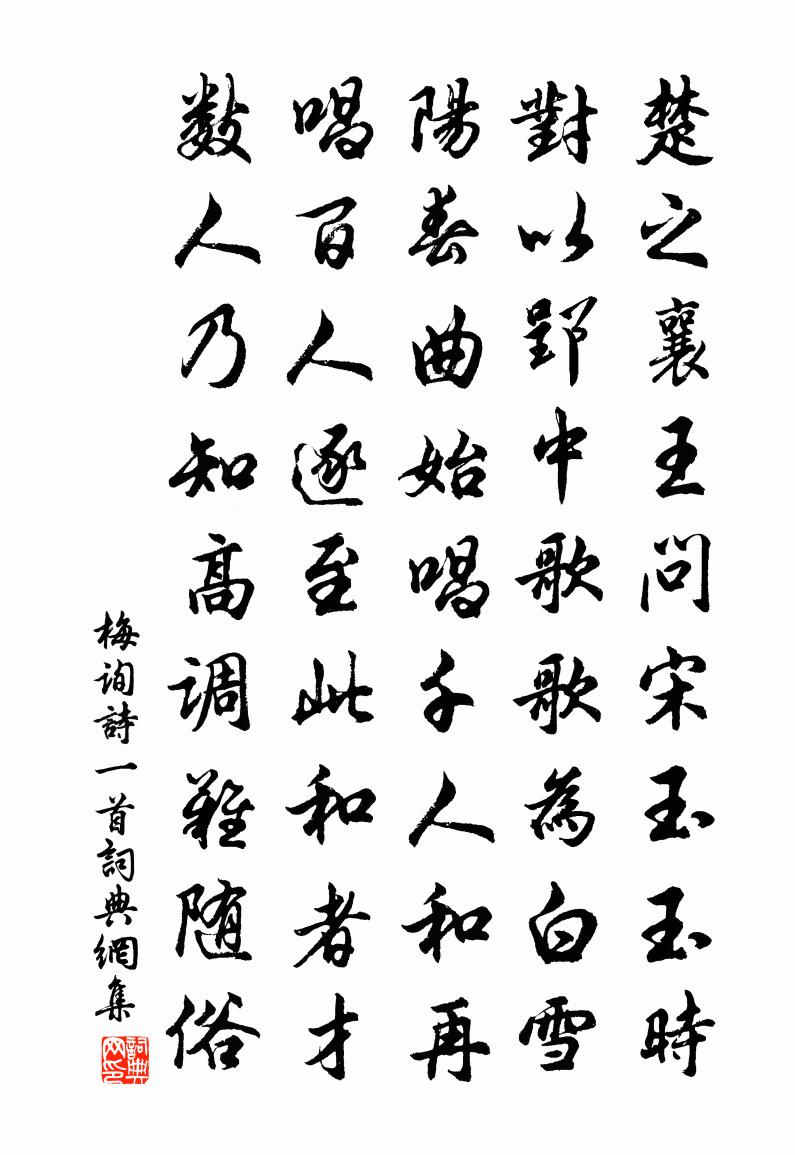 楚之襄王問宋玉玉時
對以郢中歌歌為白雪
陽春曲始唱千人和再
唱百人逐至此和者才
數人乃知高調難随俗
梅詢詩一首詞典網集
詞典网印